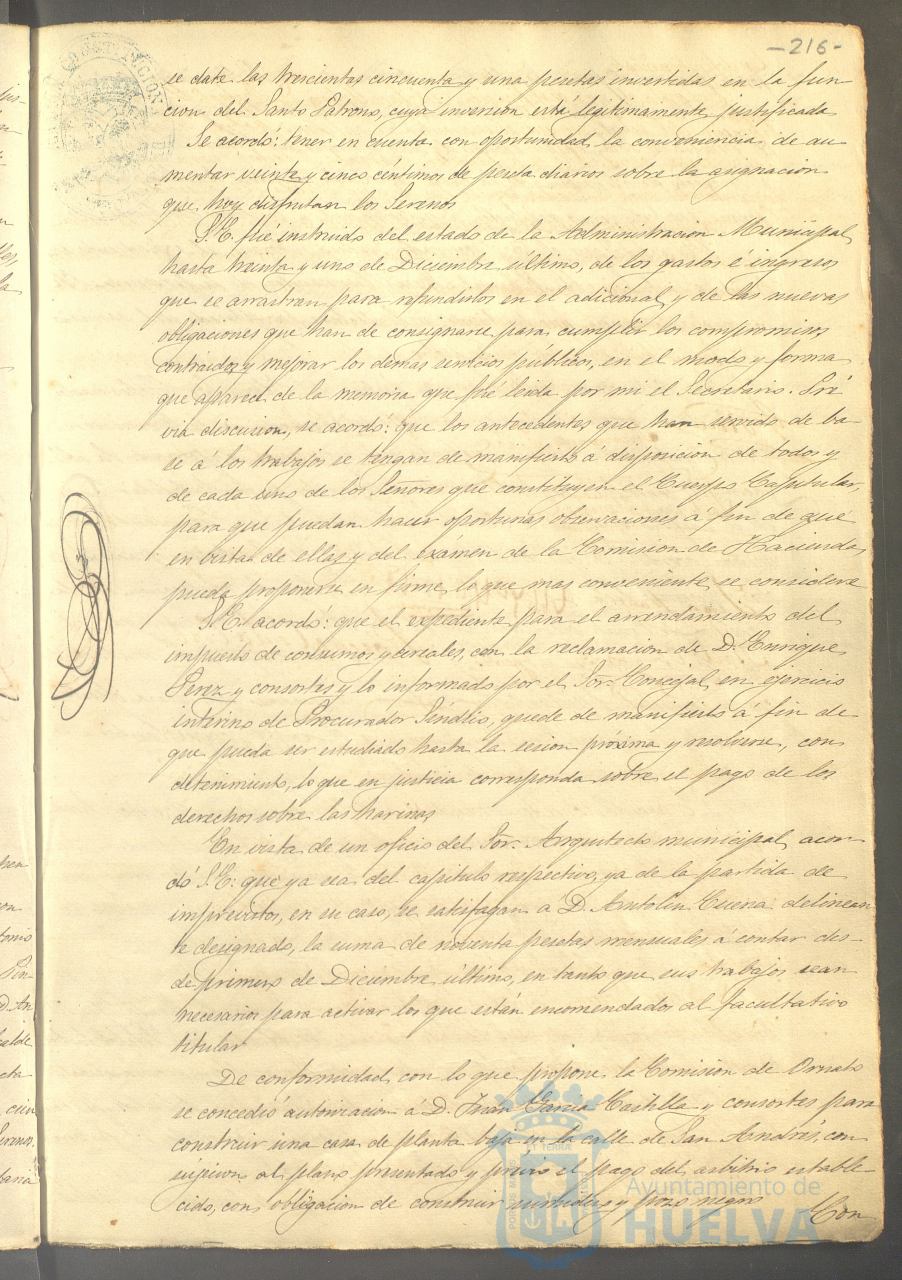 -216-
se date las trescientas cincuenta y una pesetas invertidas en la fun-
cion del Santo Patrono, cuya inversion está legitimamente justificada
Se acordó: tener en cuenta con oportunidad, la conveniencia de au-
mentar veinte y cinco céntimos de peseta diarios sobre la asignacion
que hoy disfrutan los Serenos
S.E. fué instruido del estado de la Administracion Municipal
hasta treinta y uno de Diciembre último, de los gastos e ingresos
que se arrastran para refundirlos en el adicional, y de las nuevas
obligaciones que han de consignarse para cumplir los compromisos
contraidos y mejorar los demas servicios públicos, en el modo y forma
que aparece de la memoria que fué leida por mi el Secretario. Pré
via discusion, se acordó: que los antecedentes que han servido de ba-
se á los trabajos se tengan de manifiesto á disposicion de todos y
de cada uno de los Señores que constituyen el Cuerpo Capitular,
para que puedan hacer oportunas observaciones á fin de que
en vista de ellas y del exámen de la Comision de Hacienda,
pueda proponerse en firme, lo que mas conveniente se considere
S.E. acordó: que el expediente para el arrendamiento del
impuesto de consumos y cereales, con la reclamacion de D. Enrique
Perez y consortes y lo informado por el Sor. Concejal, en ejercicio
interino de Procurador Síndico, quede de manifiesto á fin de
que pueda ser estudiado hasta la sesion próxima y resolverse, con
detenimiento, lo que en justicia corresponda sobre el pago de los
derechos sobre las harinas
En vista de un oficio del Sor. Arquitecto municipal, acor-
dó S.E: que ya sea del capitulo respectivo, ya de la partida de
imprevistos, en su caso, se satisfagan a D. Antolin Cuena delinean
te designado, la suma de noventa pesetas mensuales á contar des-
de primero de Diciembre último, en tanto que sus trabajos sean
necesarios para activar los que están encomendados al facultativo
titular
De conformidad con lo que propone la Comision de Ornato
se concedió autorizacion á D. Juan Garcia Castilla y consortes para
construir una casa de planta baja en la calle de San Andrés, con
sujecion al plano presentado y previo el pago del arbitrio estable-
cido, con obligacion de construir sumideros y pozo negro
Con
Ayuntamiento de
HUELVA